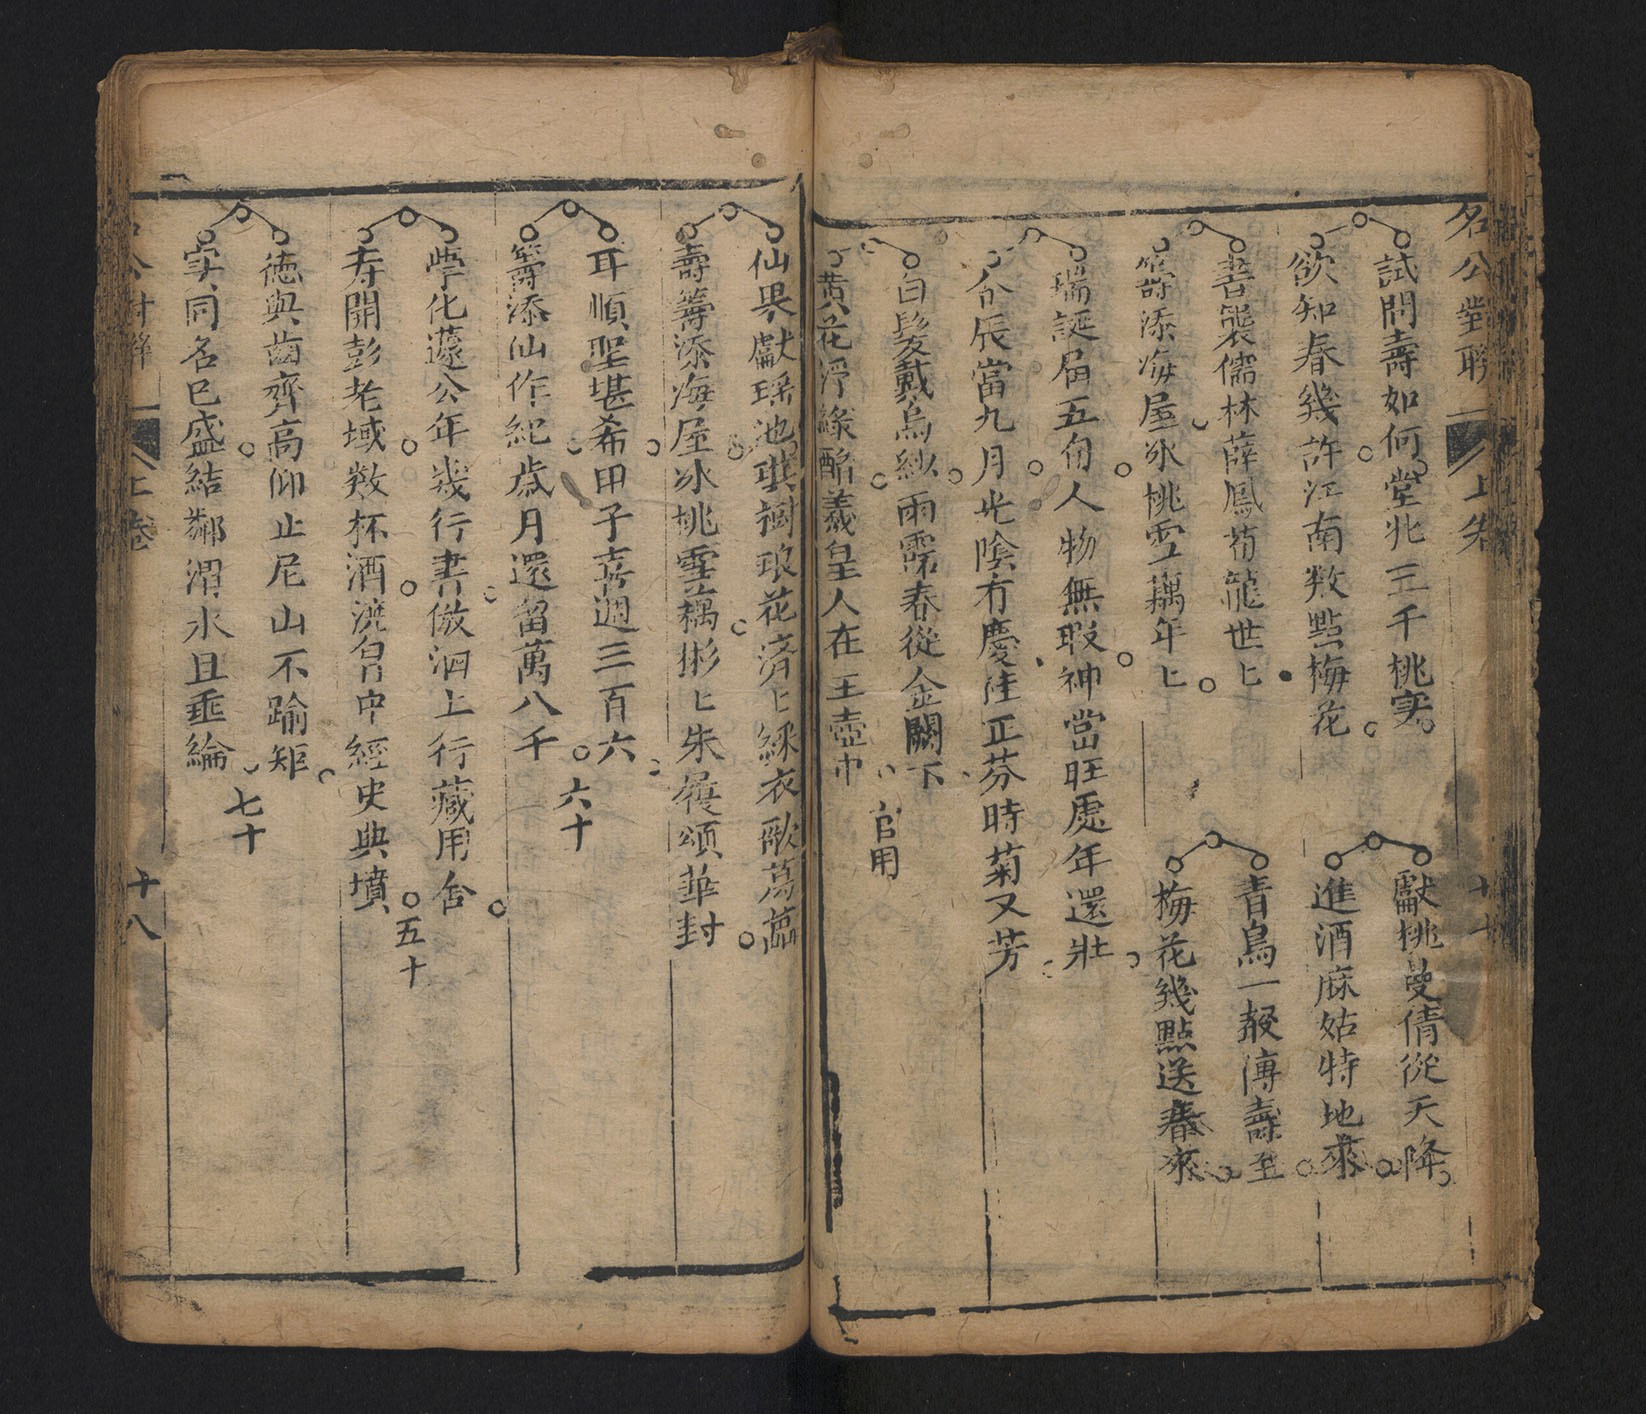 名公對聯 上卷 十七
試問壽如何堂北三千桃実
欲知春幾許江南数點梅花
献桃曼倩從天降
進酒麻姑特地來
書裝儒林薛鳳荀龍世匕
籌添海屋氷桃雪藕年匕
青鳥一声傳壽至
梅花幾點送春來
瑞誕届五旬人物無瑕神當旺處年還壯
介辰當九月光陰有慶佳正芬時菊又芳
白髮戴烏紗雨霈春從金闕下
黄花浮綠酩羲皇人在玉壺中
官用
仙果獻瑤池琪樹琅花濟匕綵衣歌萬
壽籌添海屋冰桃雪藕彬匕朱履頌華封
耳順聖堪希甲子喜週三百六
籌添仙作紀歲月還留萬八千
六十
學化蘧公年幾行書倣泗上行藏用舍
寿開彭老域数杯酒澆胷中經史典墳
五十
德與齒齊高仰止尼山不踰矩
实同名已盛結鄰渭水且垂綸
七十
上卷 十八